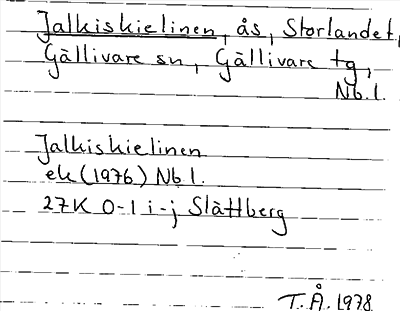 Jalkiskielinen, ås, Storlandet,
Gällivare sn, Gällivare tg,
Nb.l.
Jalkiskielinen
ek (1976) Nb l.
27K 0-1 i-j Slättberg
T.Å. 1978